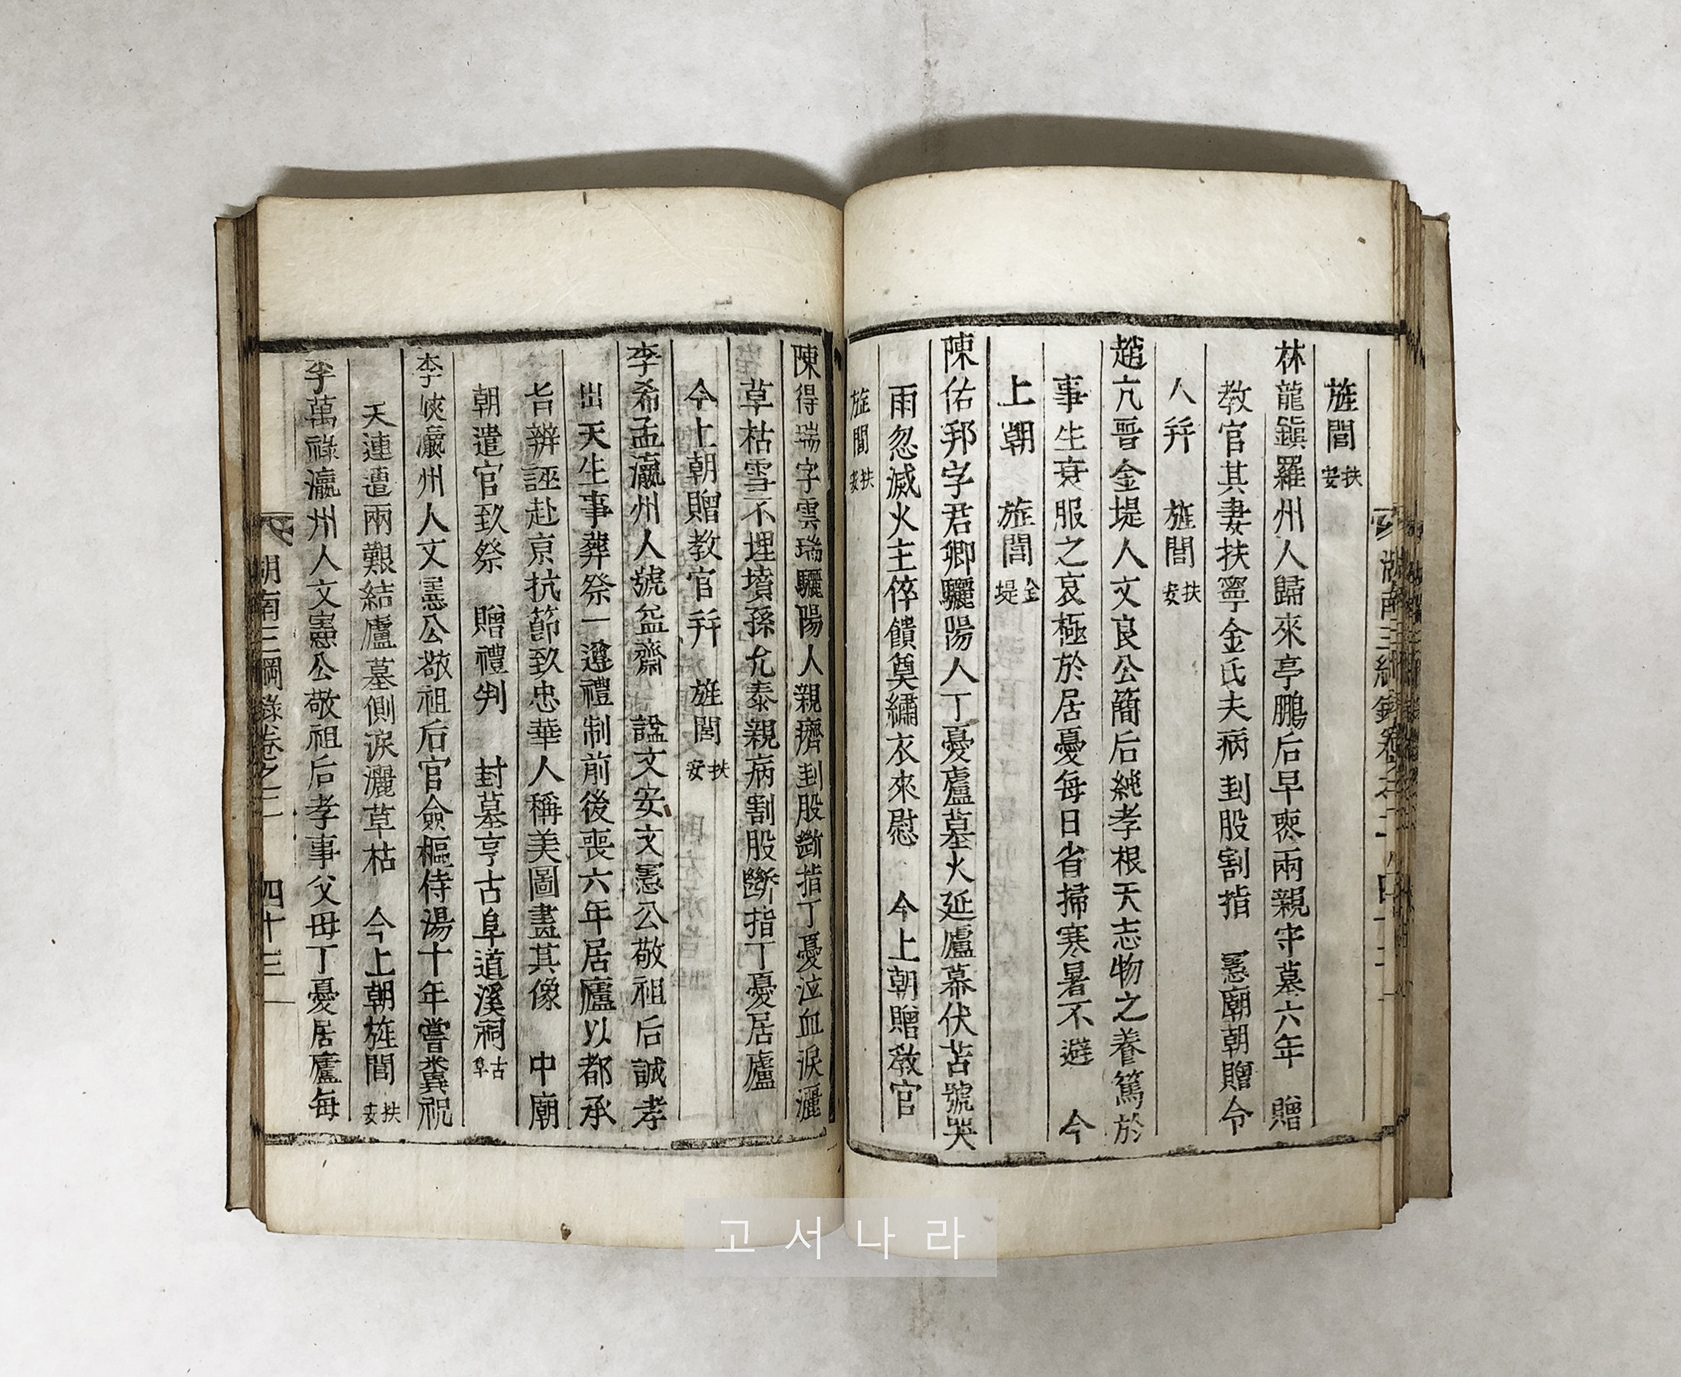 旌閭扶安
林龍鎭羅州人歸來亭鵬后早喪兩親守墓六年 贈
教官其妻扶寧金氏夫病刲股割指 憲廟朝贈令
人幷 旌閭扶安
趙亢晋金堤人文良公簡后純孝根天志物之養篤於
事生衰服之哀極於居憂每日省掃寒暑不避 今
上朝 旌閭金堤
陳佑邦字君卿驪陽人丁憂廬墓火延廬幕伏苫號哭
雨忽滅火主倅饋奠繡衣來慰 今上朝贈教官
旌閭扶安
陳得瑞字雲瑞驪陽人親癠刲股斷指丁憂泣血淚灑
草枯雪不埋墳孫允泰親病割股斷指丁憂居廬
今上朝贈教官幷 旌閭扶安
李希孟瀛州人號益齋 諡文安文憲公敬祖后誠孝
出天生事葬祭一遵禮制前後喪六年居廬以都承
旨辨誣赴京抗節致忠華人稱美圖畫其像 中廟
朝遣官致祭 贈禮判 封墓亨古阜道溪祠古阜
李峽瀛州人文憲公敬祖后官僉樞侍湯十年嘗糞祝
天連遭兩艱結廬墓側淚灑草枯 今上朝旌閭扶安
李萬祿瀛州人文憲公敬祖后孝事父母丁憂居廬每
湖南三綱錄卷之二 四十三
고서나라